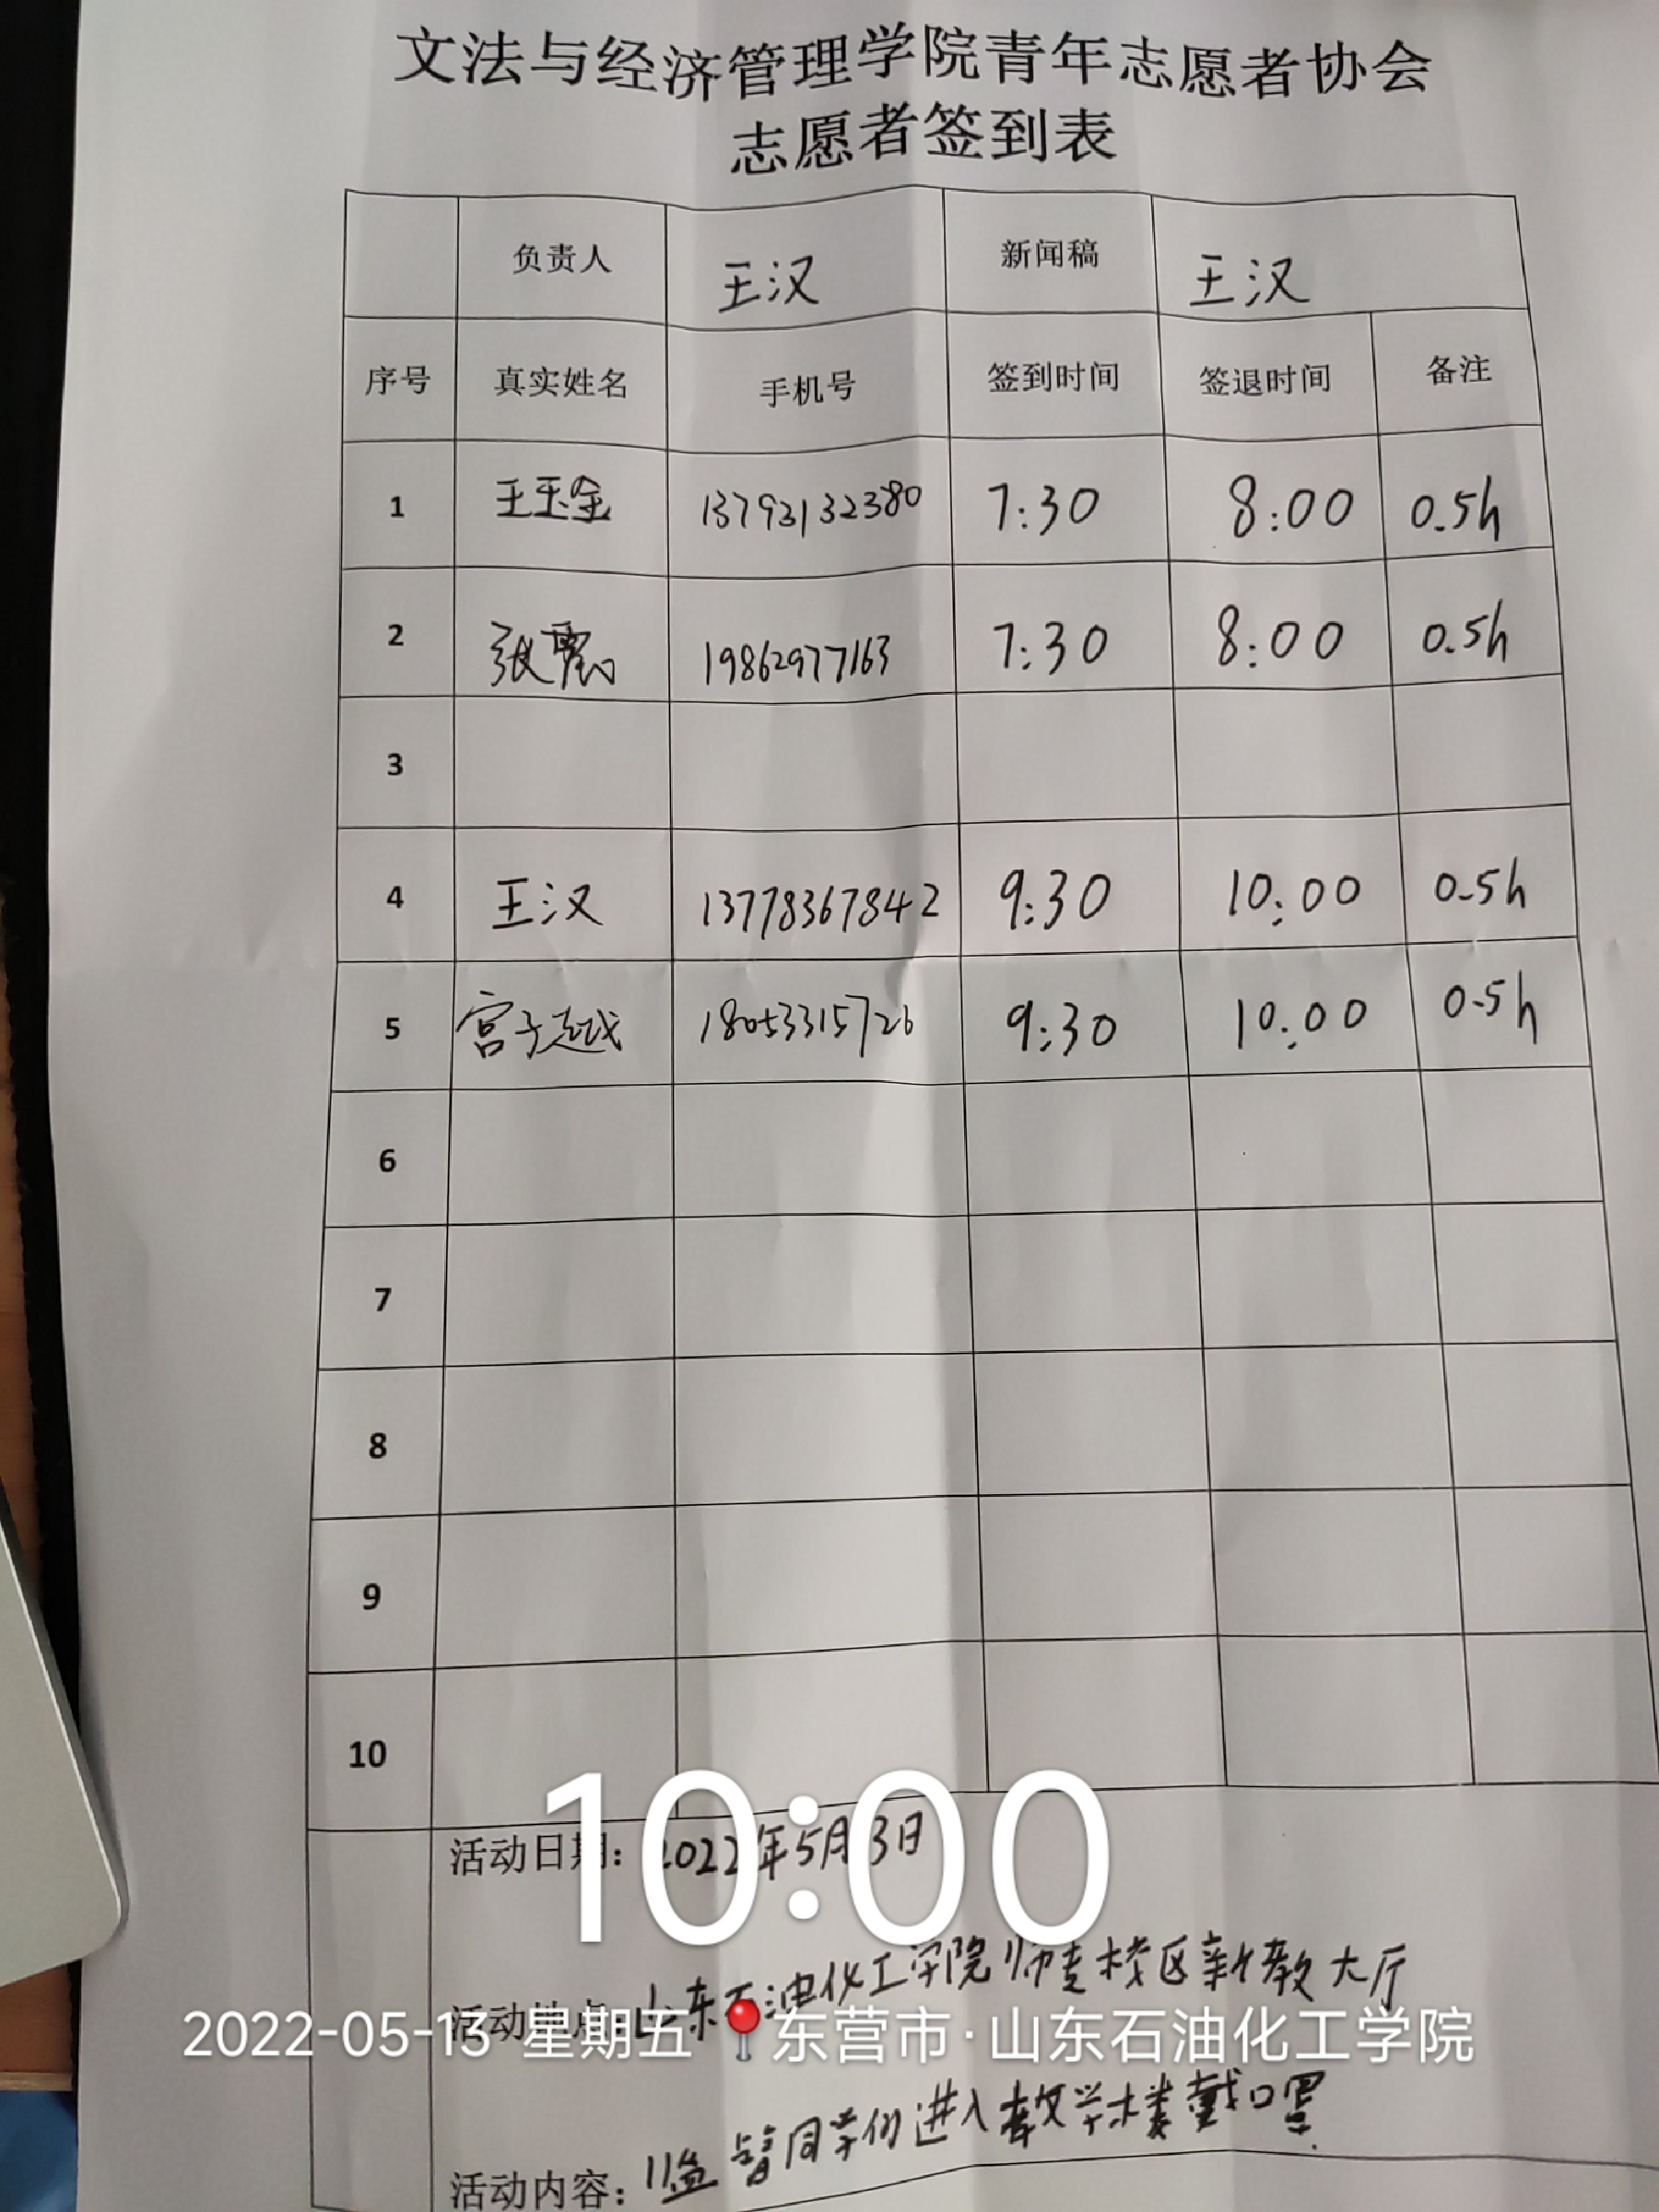 文法与经济管理学院青年志愿者协会
志愿者签到表
负责人 王汉 新闻稿 王汉
序号 真实姓名 手机号 签到时间 签退时间 备注
1 王玉金 13793132380 7:30 8:00 0.5h
2 张 19862977163 7:30 8:00 0.5h
3
4 王汉 13778367842 9:30 10:00 0.5h
5 宫子越 18053315726 9:30 10:00 0.5h
6
7
8
9
10
10:00
活动日期: 2022年5月13日
活动地点: 山东石油化工学院师专校区新教大厅
2022-05-13 星期五 东营市·山东石油化工学院
活动内容: 监督同学们进入教学楼戴口罩.